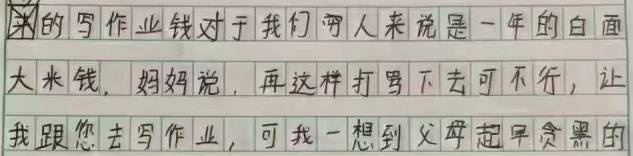 的写作业钱对于我们穷人来说是一年的白面
大米钱，妈妈说，再这样打骂下去可不行，让
我跟您去写作业，可我一想到父母起早贪黑的